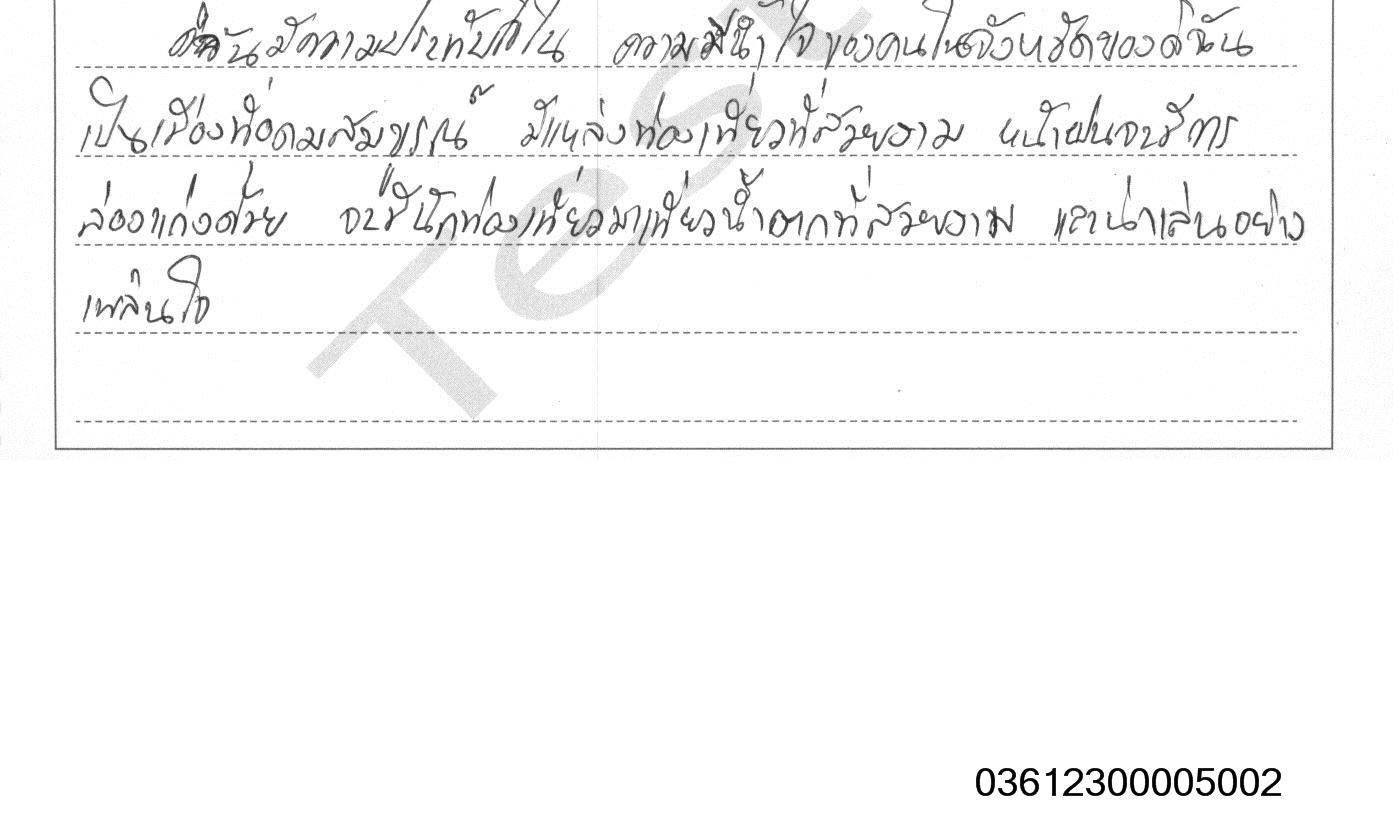 ดิฉันมีความประทับใจใน ความมีน้ำใจของคนในจังหวัดของดิฉัน
เป็นเมืองที่อุดมสมบูรณ์ มีแหล่งท่องเที่ยวที่สวยงาม หน้าฝนจะมีการ
ล่องแก่งด้วย จะมีนักท่องเที่ยวมาเที่ยวน้ำตกที่สวยงาม และน่าเล่นอย่าง
เพลินใจ
Test
03612300005002